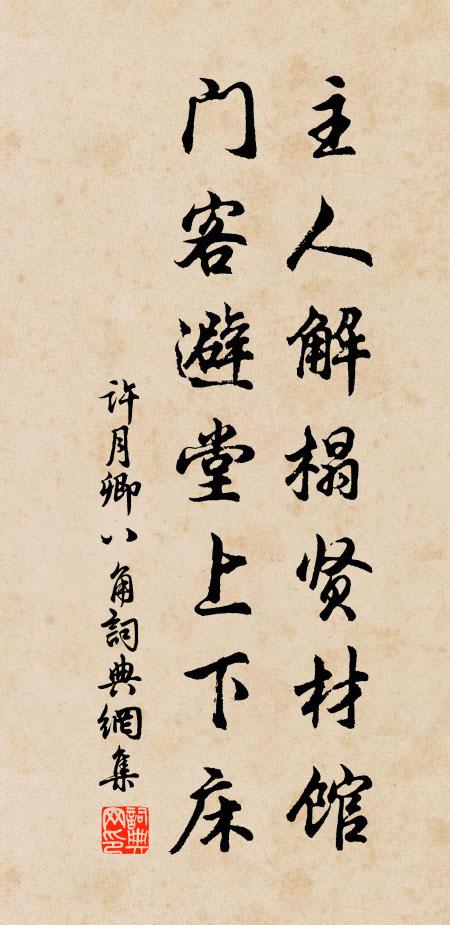 主人解榻贤材馆
门客避堂上下床
许月卿八角詞典網集
詞典网印